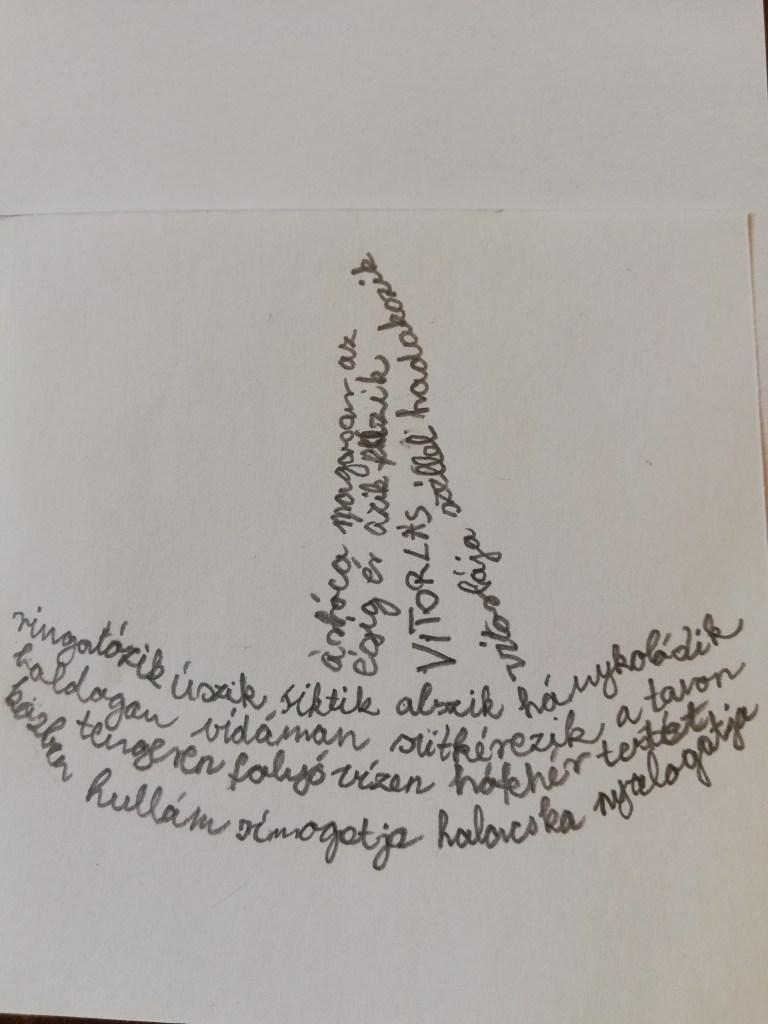 árbóca magasan az
égig ér azik fázik
VITORLÁS
vitorlája széllel hadakozik
ringatózik úszik siktik alszik hánykolódik
boldogan vidáman sütkérezik a tavon
tengeren folyó vízen hófehér testét
közben hullám simogatja halacska nyalogatja